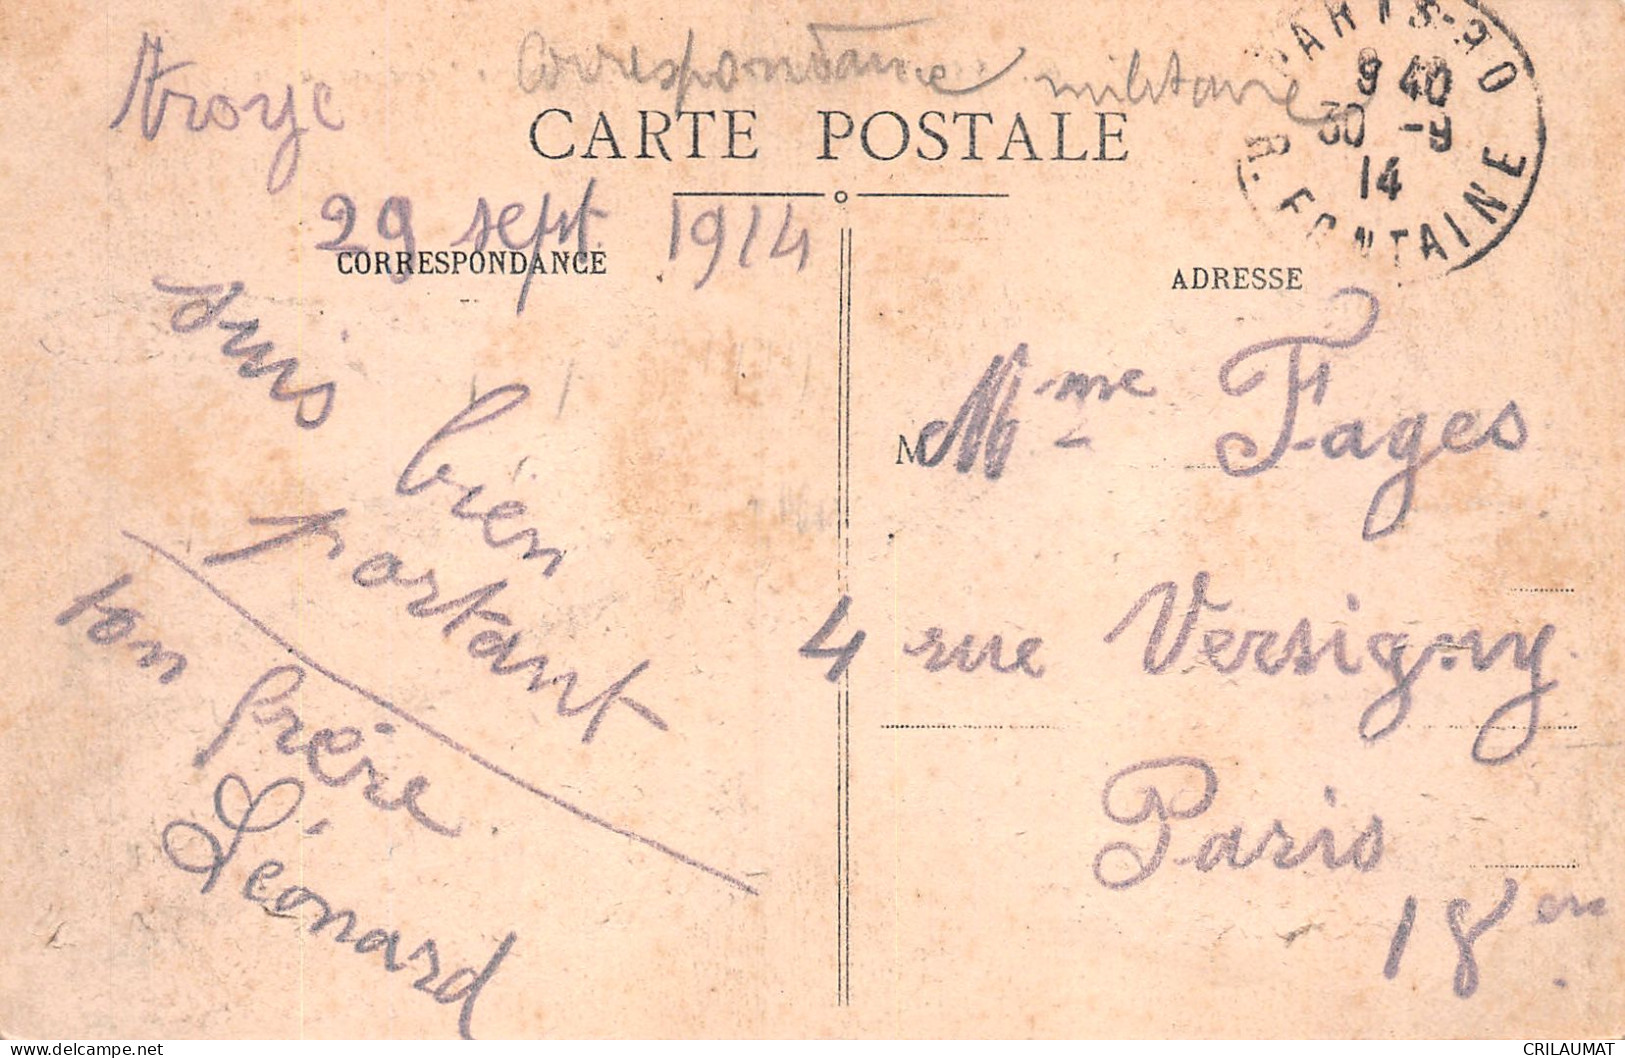 Correspondance militaire
CARTE POSTALE
PARIS-XO
9 40
30 -9
14
R. FONTAINE
troye
29 sept. 1914
CORRESPONDANCE
suis
bien
portant
ton frère
Léonard
ADRESSE
M Mme Fages
4 rue Versigny
Paris
18em
CRILAUMAT